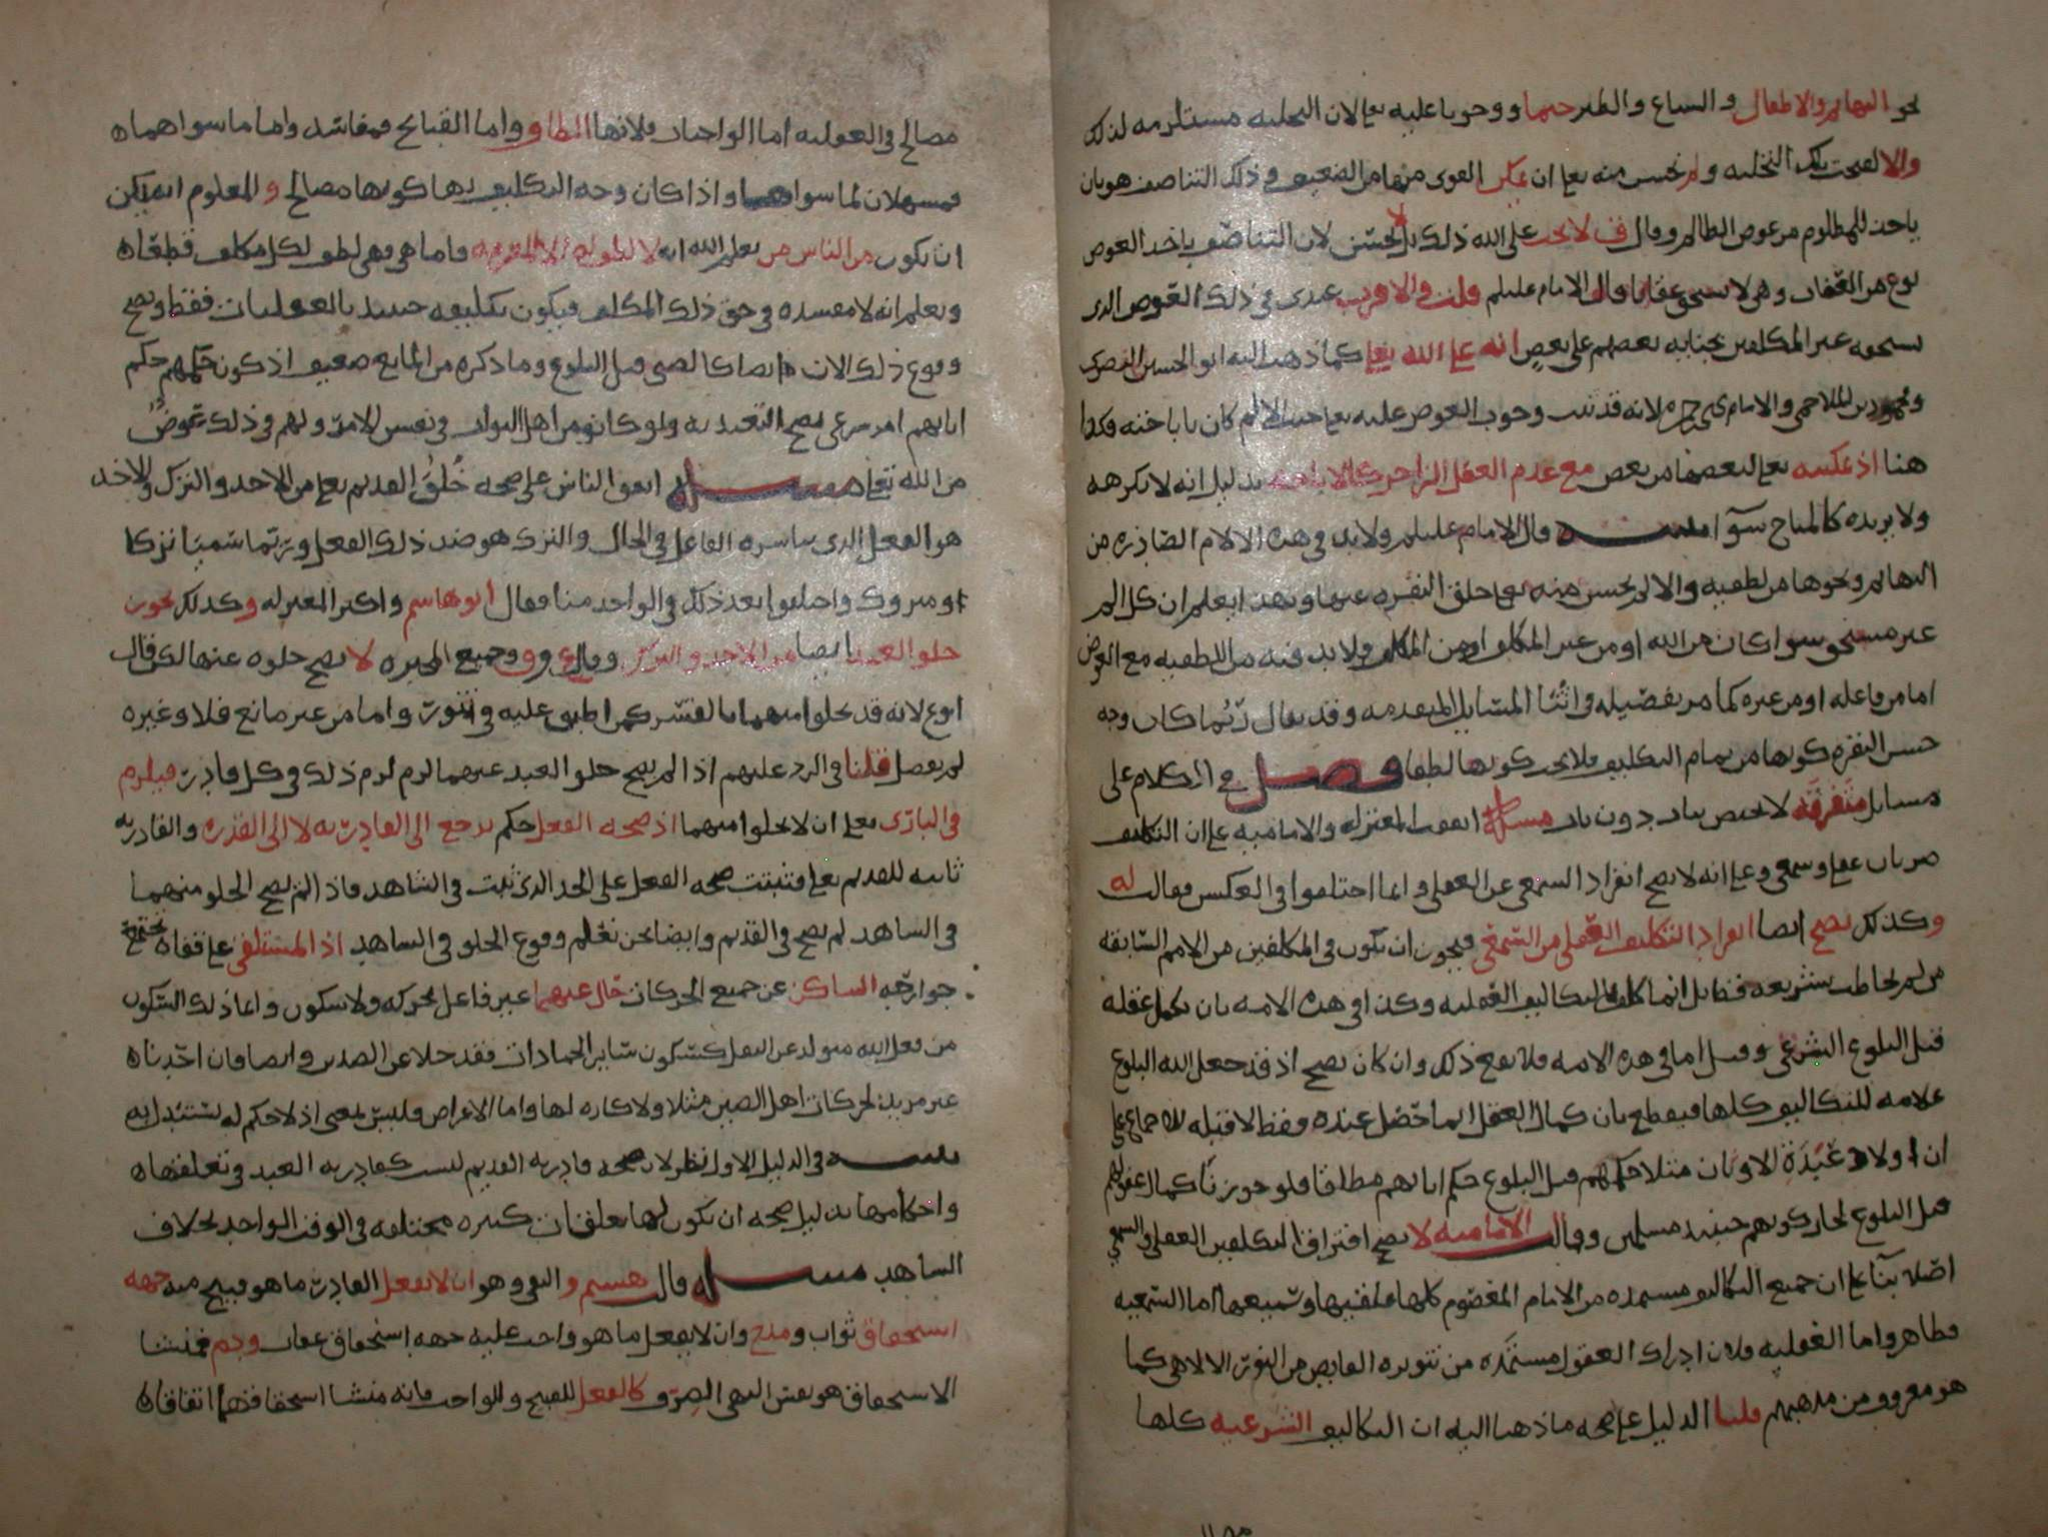 نحو البهائم والاطفال و السباع والطير حتما ووجوبا عليه تعالى لان التخليه مستلزمه لذلك
والا لقبحت تلك التخليه ولم يحسن منه تعالى ان يمكن القوى منها من الضعيف وذلك التناصف هو بان
ياخذ للمظلوم من عوض الظالم وقال ف لا يجب على الله ذلك بل يحسن لان التناصف ياخذ العوض
نوع من العقاب وهى لا تستحق عقابا قال الامام عليلم قلت والاقرب عندى فى ذلك العوض الذى
يستحقه غير المكلفين بجنايه بعضهم على بعض انه على الله تعالى كما ذهب اليه ابو الحسين البصرى
ومحمود بن الملاحمى والامام يحيى بن حمزه لانه قد ثبت وجوب العوض عليه تعالى حيث الالم كان باباحته فكذا
هنا اذ تمكينه تعالى لبعضها من بعض مع عدم العقل الزاجر كالاباحه بدليل انه لا يكرهه
ولا يريده كالمباح سوآ مسئله قال الامام عليلم ولابد فى هذه الالام الصادره من
البهائم ونحوها من لطفيه والا لم يحسن منه تعالى خلق النفره عنها وبهذا يعلم ان كل الم
غير مستحق سوا كان من الله او من غير المكلف او من المكلف ولا بد فيه من اللطفيه مع العوض
اما من فاعله او من غيره كما مر تفصيله فى اثنا المسايل المتقدمه وقد يقال ربما كان وجه
حسن النفره كونها من تمام التكليف فلا يجب كونها لطفا فصل فى الكلام على
مسايل متفرقه لا تختص بباب دون باب مسئله اتفقت المعتزله والاماميه على ان التكليف
ضربان عقلى وسمعى وعلى انه لا يصح انفراد السمعى عن العقلى وانما اختلفوا فى العكس فقالت له
وكذلك يصح ايضا انفراد التكليف العقلى من السمعى فيجوز ان يكون فى المكلفين من الامم السابقه
من لم يخاطب بشريعه فقايل انما كلف بالتكاليف العقليه وكذا فى هذه الامه بان يكمل عقله
قبل البلوغ الشرعى وقيل اما فى هذه الامه فلا يقع ذلك وان كان يصح اذ قد جعل الله البلوغ
علامه للتكاليف كلها فيقطع بان كمال العقل انما حصل عنده وفقط لا قبله للاجماع على
ان اولاد عبدة الاوثان مثلا حكمهم قبل البلوغ حكم ابايهم مطلقا فلو جوزنا كمال عقولهم
قبل البلوغ لجاز كونهم حينئذ مسلمين وقالت الاماميه لا يصح افتراق التكليفين العقلى والسمعى
اصلا بنآ على ان جميع التكاليف مستمده من الامام المعصوم كلها عقليها وسمعيها اما السمعيه
فظاهر واما العقليه فلان ادراك العقول مستمده من تنويره الفايض من النور الالاهى كما
هو معروف من مذهبهم قلنا الدليل على صحه ما ذهبنا اليه ان التكاليف الشرعيه كلها
مصالح فى العقليه اما الواجبات فلانها الطاف واما القبائح فمفاسد واما ما سواهما
فمسهلان لما سواهما واذا كان وجه التكليف بها كونها مصالح و المعلوم انه يمكن
ان يكون من الناس من يعلم الله انه لا لطف له الا المعرفه فاما هى فهى لطف لكل مكلف قطعا
ويعلم انه لا مفسده فى حق ذلك المكلف فيكون تكليفه حينئذ بالعقليات فقط ويصح
وقوع ذلك الان ايضا كالصبى قبل البلوغ وما ذكره من المانع ضعيف اذ كون حكمهم حكم
ابايهم امر شرعى يصح التعبد به ولو كانوا من اهل الثواب فى نفس الامر ولهم فى ذلك عوض
من الله تعالى مسئله اتفق الناس على صحه خلو القديم تعالى من الاخذ والترك والاخذ
هو الفعل الذى يباشره الفاعل فى الحال والترك هو ضد ذلك الفعل وربما سمى تركا
او متروك واختلفوا بعد ذلك فى الواحد منا فقال ابو هاشم واكثر المعتزله وكذلك يجوز
خلو العبد ايضا من الاخذ والترك وقال ع وق وجميع المجبره لا يصح خلوه عنهما لكن قال
ابو ع لانه قد يخلو منهما بالقسر كمن اطبق عليه فى تنور واما من غير مانع فلا وغيره
لم يفصل قلنا فى الرد عليهم اذا لم يصح خلو العبد عنهما لزم ذلك فى كل قادر فيلزم
فى البارى تعالى ان لا يخلو منهما اذ صحه الفعل حكم يرجع الى القادريه لا الى القدره والقادريه
ثابته للقديم تعالى فتثبت صحه الفعل على الحد الذى ثبت فى الشاهد فاذا لم يصح الخلو منهما
فى الشاهد لم يصح فى القديم وايضا نحن نعلم وقوع الخلو فى الشاهد اذ المستلقى على قفاه مجتمعه
جوارحه الساكن عن جميع الحركات خال عنهما غير فاعل لحركه ولا سكون وانما ذلك السكون
من فعل الله متولد عن الثقل كسكون ساير الجمادات فقد خلا عن الضدين وايضا فان احدنا
غير مريد لحركات اهل الصين مثلا ولا كاره لها واما الاعراض فليس بمعنى اذ لا حكم له يستدل به
تنبيه فى الدليل الاول نظر لان صحه قادريه القديم ليست كقادريه العبد فى تعلقها
واحكامها بدليل صحه ان يكون لها تعلقات كثيره مختلفه فى الوقت الواحد بخلاف
الشاهد مسئله قال هشم و النفى وهو ان لا يفعل القادر ما هو قبيح منه جهه
استحقاق ثواب ومدح وان لا يفعل ما هو واجب عليه جهه استحقاق عقاب وذم فمنشا
الاستحقاق هو نفس النفى الصرف كالفعل للقبيح وللواجب فانه منشا استحقاقهما اتفاقا